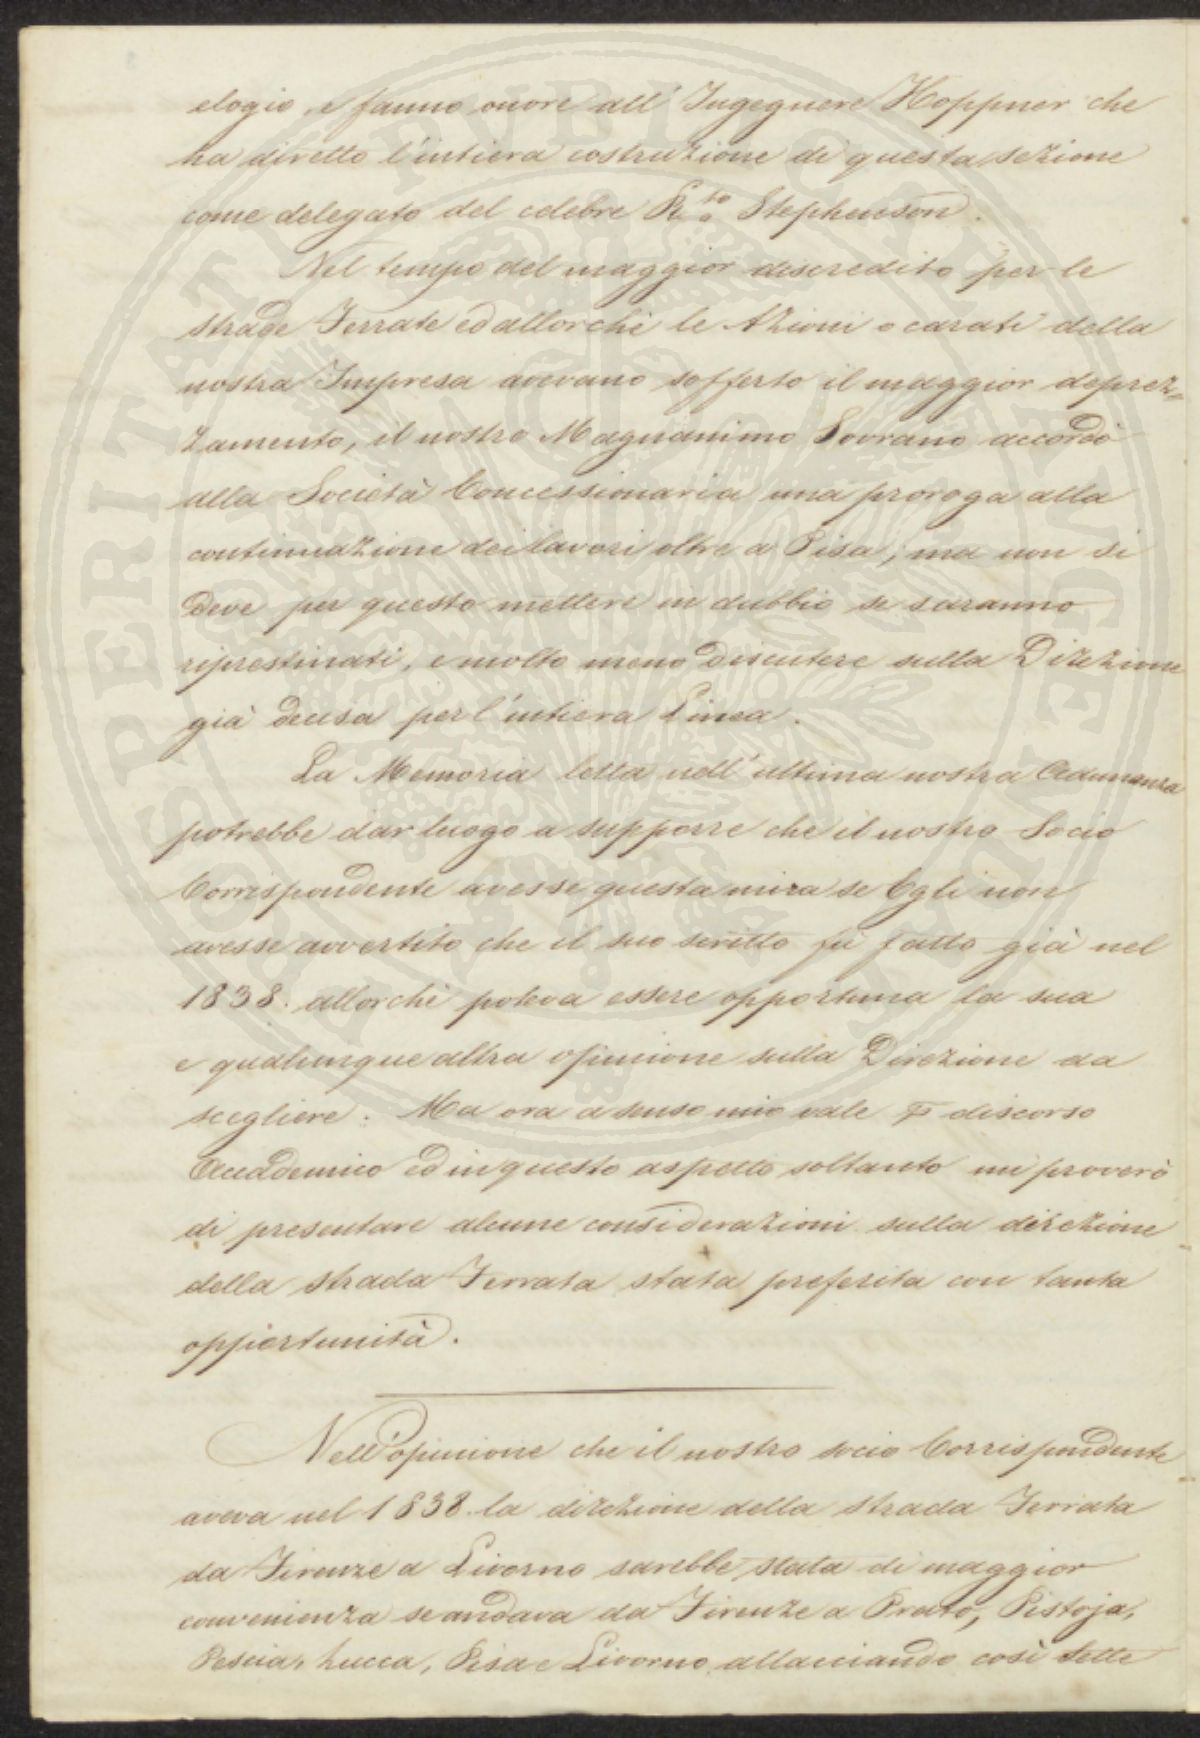 elogio, e fanno onore all' Ingegnere Hoppner che
ha diretto l'intiera costruzione di questa sezione
come delegato del celebre R.to Stephenson.
Nel tempo del maggior discredito per le
strade Ferrate ed allorchè le Azioni o carati della
nostra Impresa avevano sofferto il maggior deprez=
zamento, il nostro Magnanimo Sovrano accordò
alla Società Concessionaria una proroga alla
continuazione dei lavori oltre a Pisa; ma non si
deve per questo mettere in dubbio se saranno
ripristinati, e molto meno discutere sulla Direzione
già decisa per l'intiera Linea.
La Memoria letta nell' ultima nostra Adunanza
potrebbe dar luogo a supporre che il nostro Socio
Corrispondente avesse questa mira se Egli non
avesse avvertito che il suo scritto fù fatto già nel
1838. allorchè poteva essere opportuna la sua
e qualunque altra opinione sulla Direzione da
scegliere. Ma ora a senso mio vale p discorso
Accademico ed in questo aspetto soltanto mi proverò
di presentare alcune considerazioni sulla direzione
della strada Ferrata stata preferita con tanta
opportunità.
Nell'opinione che il nostro socio Corrispondente
aveva nel 1838. la direzione della strada Ferrata
da Firenze a Livorno sarebbe stata di maggior
convenienza se andava da Firenze a Prato, Pistoja,
Pescia, Lucca, Pisa e Livorno allacciando così sette
SOSPERITATI PUBLICAE AUGENDAE